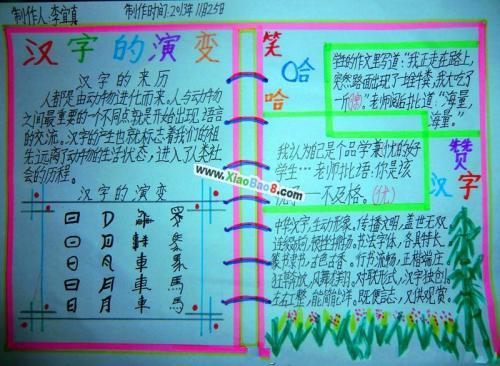 制作人:李宜真
制作时间:2013年11月25日
汉字的演变
汉字的来历
人都是由动物进化而来。人与动物
之间最重要的一个不同点就是开始出现语言
的交流。汉字的产生也就标志着我们的祖
先远离了动物的生活状态,进入了人类社
会的历程。
汉字的演变
日 月 車 馬
笑哈哈
学生的作文里写道:“我正走在路上,
突然路面出现了一堆牛粪,我大吃了
一斤(惊)。”老师阅后批道:“海量,
海量。”
我认为自己是个品学兼忧的好
学生…老师批语:你是该
忧了——不及格。(优)
www.XiaoBao8.com
赞汉字
中华文字,生动形象,传播文明,盖世无双
书法字体,各具特长
篆书隶书,古色古香。行书流畅,正楷端庄
对联形式,汉字独创。
左右工整,能简能详。既便言志,又供观赏。